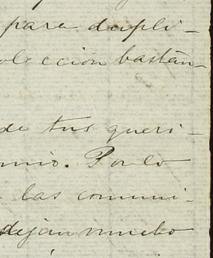 para dupli-
olección bastan-
de tus queri-
mio. Por lo
las comuni-
dejan mucho